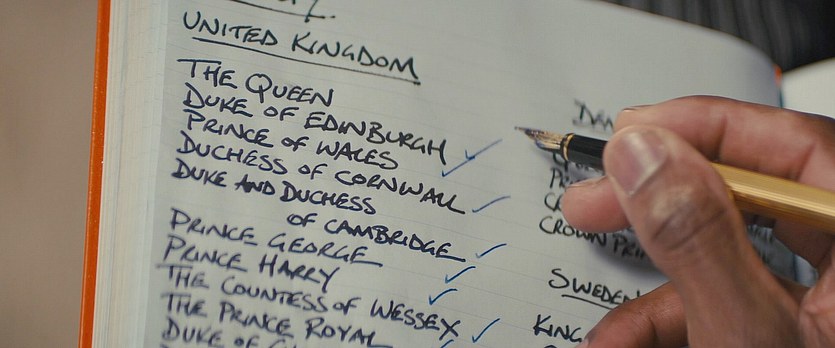 UNITED KINGDOM
THE QUEEN
DUKE OF EDINBURGH
PRINCE OF WALES
DUCHESS OF CORNWALL
DUKE AND DUCHESS
OF CAMBRIDGE
PRINCE GEORGE
PRINCE HARRY
THE COUNTESS OF WESSEX
THE PRINCE ROYAL
DUKE OF
CROWN
SWEDEN
KING